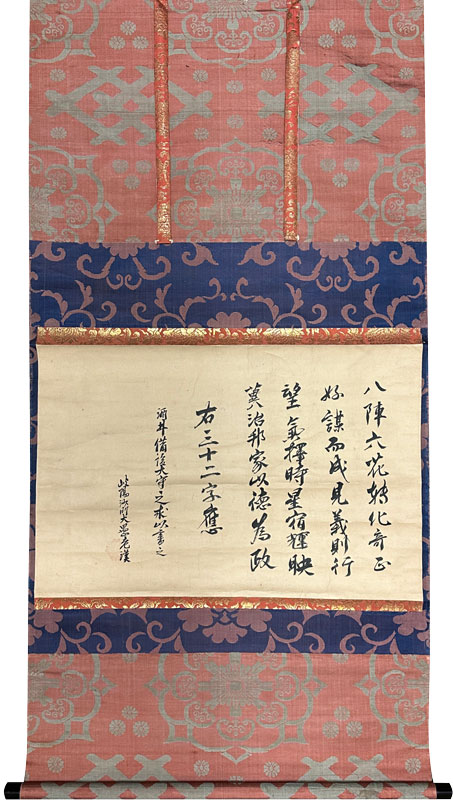 八陣六花轉化奇正
好謀而成見義則行
望氣擇時星宿輝映
奠治邦家以德為政
右三十二字應
酒井備後大守之求以書之
陽沙門大愚老漢